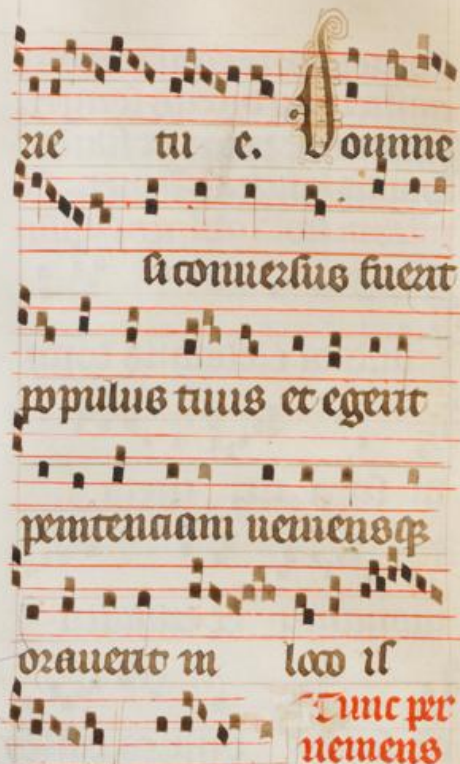 rie tu e. Domine
si conuersus fuerit
populus tuus et egerit
penitenciam ueniensqꝫ
orauerit in loco is
Tunc per
ueniens